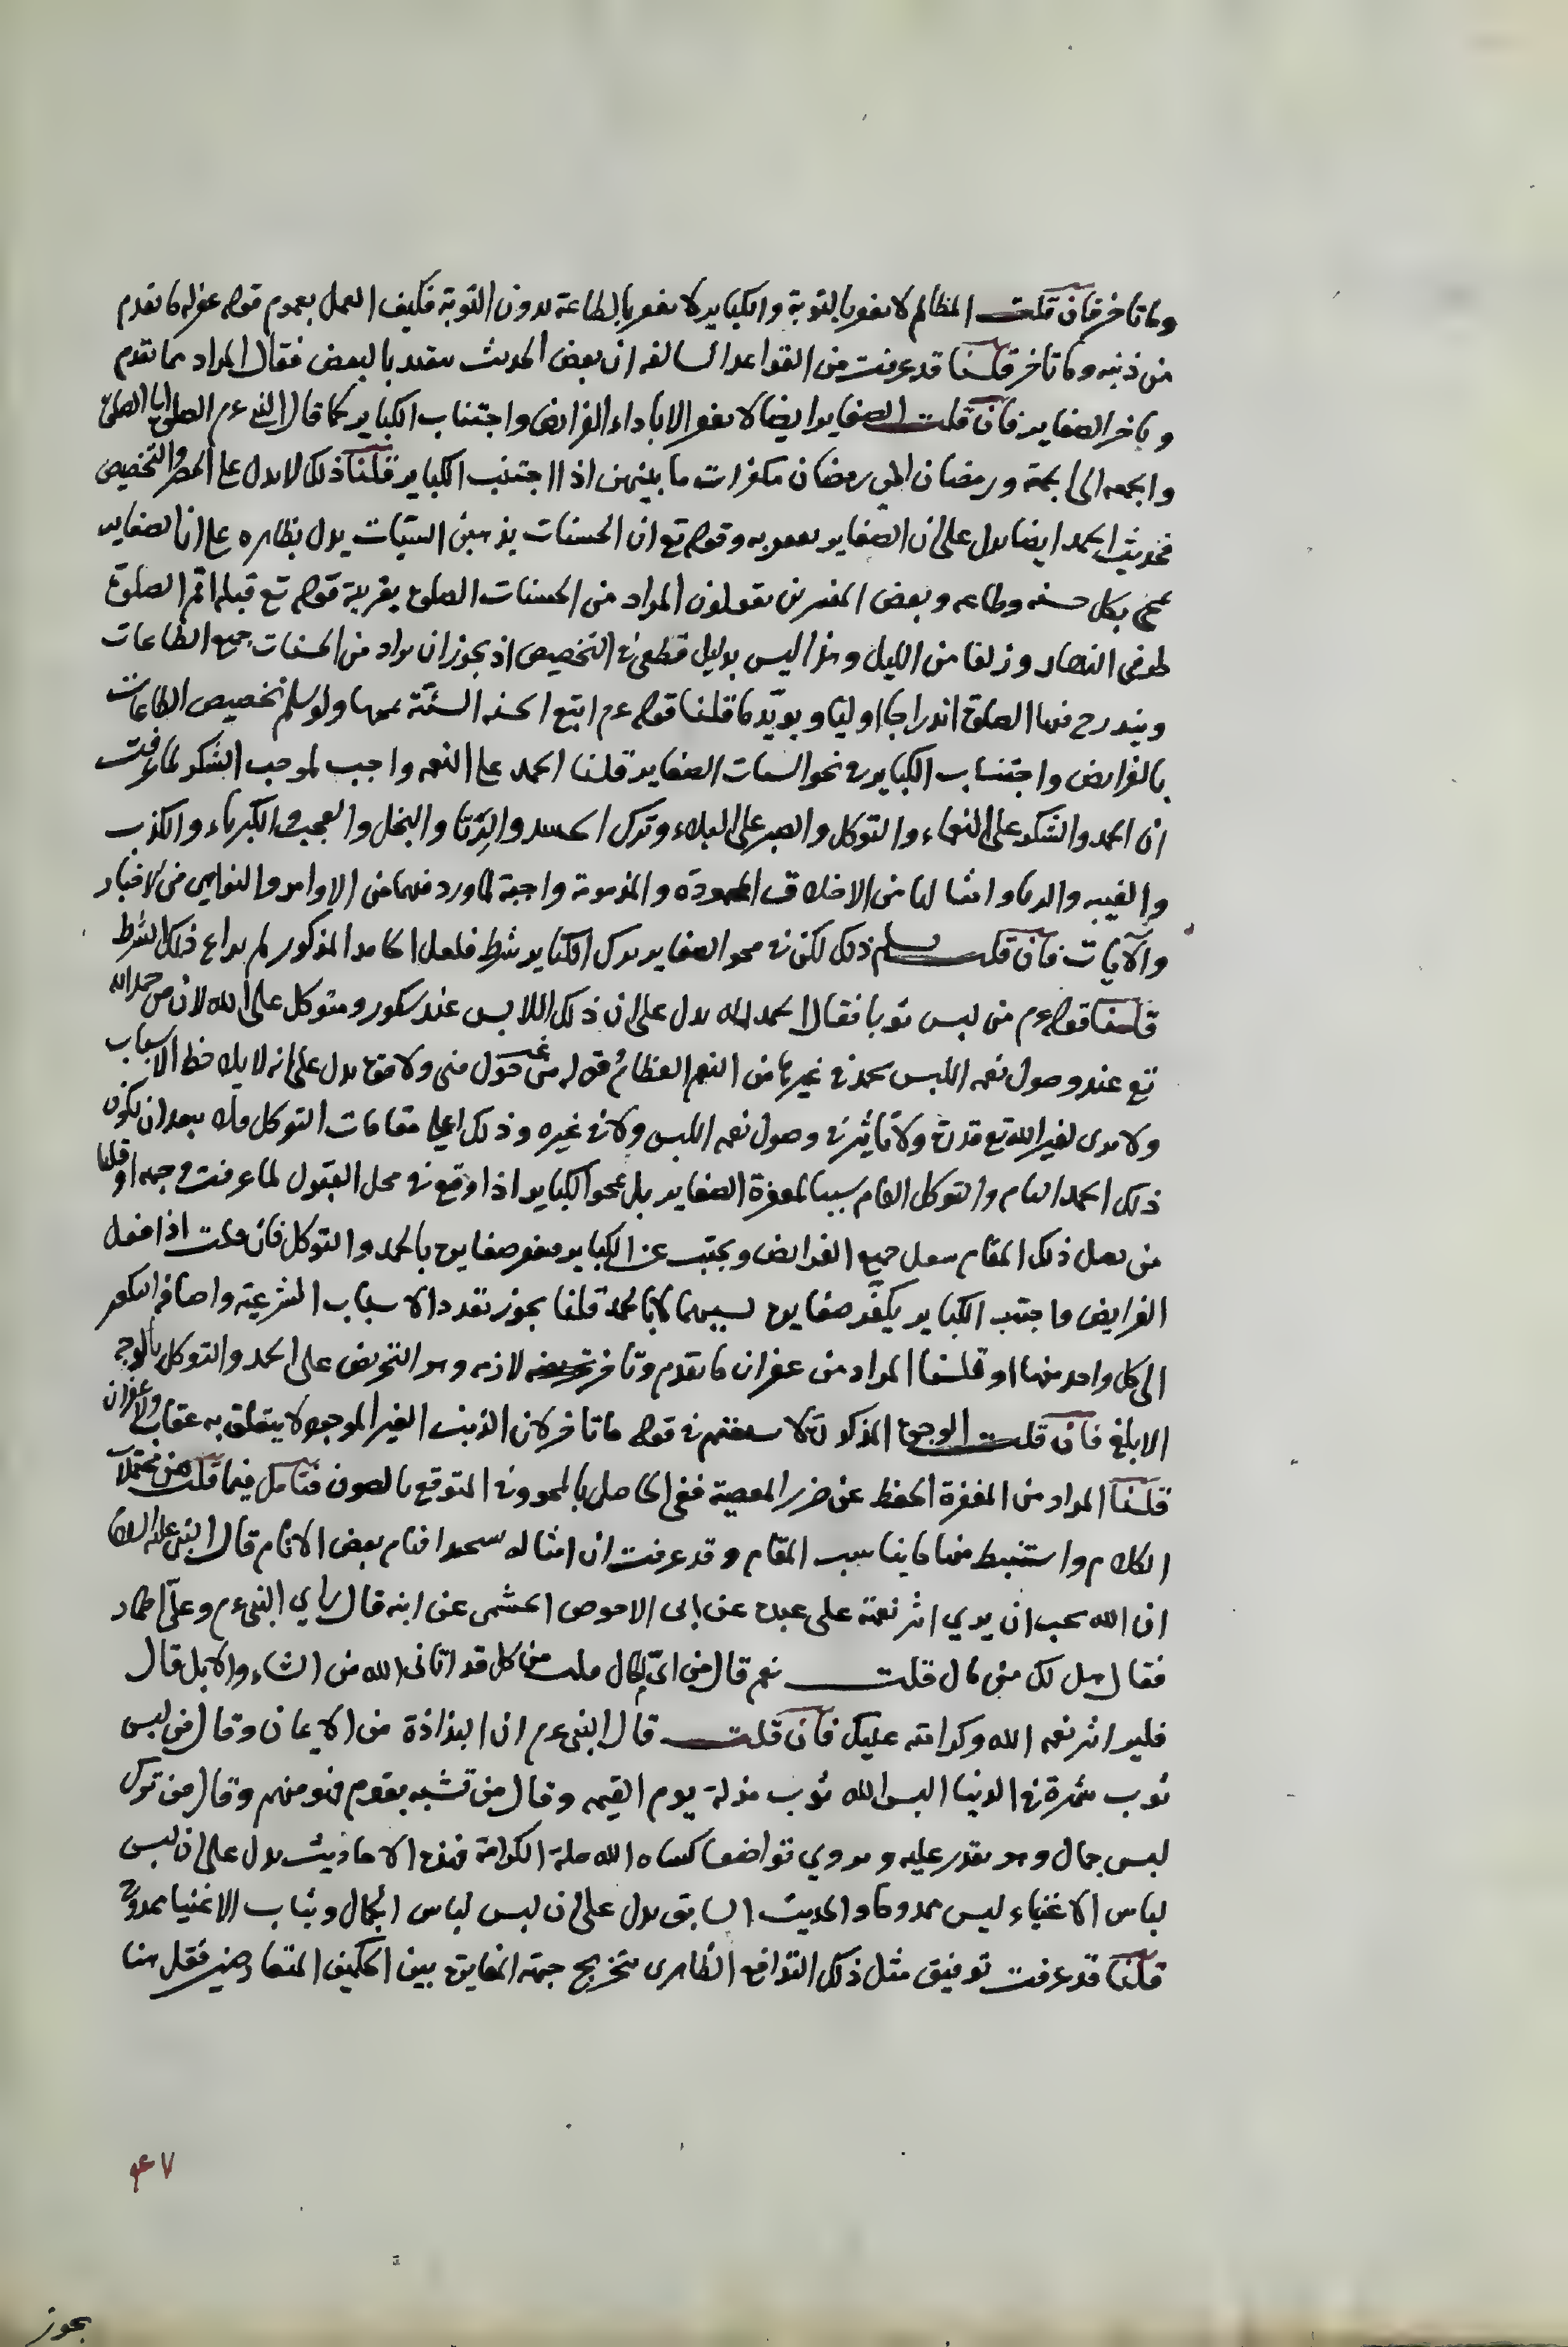 وما تاخر فان قلت المظالم لا يغفر بالتوبة والكباير لا يغفر بالطاعة بدون التوبة فكيف العمل بعموم قوله غفر له ما تقدم
من ذنبه وما تاخر قلنا قد عرفت من القواعد السالفه ان بعض الحديث يتقيد بالبعض فقال المراد مما تقدم
وتاخر الصغاير فان قلت الصغاير ايضا لا يغفر الا باداء الفرايض واجتناب الكباير كما قال النبي ءم الصلوة الي الصلوة
والجمعه الى الجمعة ورمضان الي رمضان مكفرات ما بينهن اذا اجتنب الكباير قلنا ذلك لا يدل علي الحصر والتخصيص
فحديث الحمد ايضا يدل على ان الصغاير يغفر به وقوله تع ان الحسنات يذهبن السيئات يدل بظاهره علي ان الصغاير
تمحي بكل حسنه وطاعه وبعض المفسرين يقولون المراد من الحسنات الصلوة بقرينة قوله تع قبله اقم الصلوة
طرفي النهار وزلفا من الليل وهذا ليس بدليل قطعي في التخصيص اذ يجوز ان يراد من الحسنات جميع الطاعات
ويندرج فيها الصلوة اندراجا اوليا ويويّد ما قلنا قوله ءم اتبع الحسنه السيّئة تمحها ولو سلم تخصيص الطاعات
بالفرايض واجتناب الكباير في نحو السيات الصغاير قلنا الحمد علي النعم واجب لموجب الشكر لما عرفت
ان الحمد والشكر على النعماء والتوكل والصبر على البلاء وترك الحسد والرّيا والبخل والعجب والكبرياء والكذب
والغيبه والريا وامثالها من الاخلاق المحمودة والمذمومة واجبة لما ورد فيها من الاوامر والنواهي من الاخبار
والآيات فان قلت سلم ذلك لكن في محو الصغاير ترك الكباير شرط فلعل الحامد المذكور لم يراع ذلك الشرط
قلنا قوله ءم من لبس ثوبا فقال الحمد لله يدل على ان ذلك اللابس عند شكور ومتوكل على الله لان من حمد الله
تع عند وصول نعمه اللبس يحمد في غيرها من النعم العظام وقوله من غير حول مني ولا قوة يدل على انه لا يلاحظ الاسباب
ولا يرى لغير الله تع قدرة ولا تأثير في وصول نعمه اللبس ولا في غيره وذلك اعلي مقامات التوكل فلا يبعد ان يكون
ذلك الحمد التام والتوكل العام سببا لمغفرة الصغاير بل يمحو الكباير اذا وقع في محل القبول لما عرفت وجهه او قلنا
من يصل ذلك المقام يعمل جميع الفرايض ويجتنب عن الكباير فيغفر صغايره بالحمد والتوكل فان قلت اذا فعل
الفرايض واجتنب الكباير يكفّر صغايره بسببهما لا بالحمد قلنا يجوز تعدد الاسباب الشرعية واضافه التكفير
الى كل واحد منهما او قلنا المراد من غفران ما تقدم وتاخر لازمه وهو التحريض على الحمد والتوكل بالوجه
الابلغ فان قلت الوجوه المذكورة لا يستقيم في قوله ما تاخر لان الذنب الغير الموجود لا يتعلق به عقاب ولا غفران
قلنا المراد من المغفرة الحفظ عن ضرر المعصية ففي الحاصل بالمحو وفي المتوقع بالصون فتامل فيما قلت من محتملات
الكلام واستنبط منها ما يناسب المقام وقد عرفت ان امثاله بعض الانام قال النبي عليه السلام
ان الله يحب ان يري اثر نعمة على عبده عن ابي الاحوص الجشمي عن ابيه قال راي النبي ءم وعليّ اطمار
فقال هل لك من مال قلت نعم قال من ايّ المال قلت من كل قد اتاني الله من الشاء والابل قال
فلير اثر نعم الله وكرامته عليك فان قلت قال النبي ءم ان البذاذة من الايمان وقال من لبس
ثوب شهرة في الدنيا البس الله ثوب مذلة يوم القيمه وقال من تشبه بقوم فهو منهم وقال من ترك
لبس جمال وهو يقدر عليه ويروي تواضعا كساه الله حلة الكرامة فهذه الاحاديث يدل على ان لبس
لباس الاغنياء ليس ممدوحا والحديث السابق يدل على ان لبس لباس الجمال وثياب الاغنيا ممدوح
قلنا قد عرفت توفيق مثل ذلك التدافع الظاهرى بتخريج جهة المغايرة بين الحكمين المتعارضين فقل هنا
٤٧
يجوز